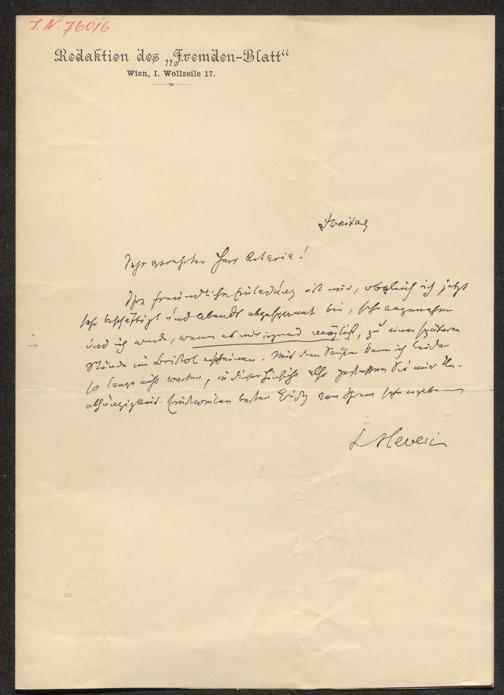 J. N. 76016
Redaktion des „Fremden-Blatt“
Wien, I. Wollzeile 17.
Freitag
Sehr geehrter Herr Artaria!
Ihre freundliche Einladung ist mir, obgleich ich jetzt
sehr beschäftigt und Abends abgespannt bin, sehr angenehm
und ich werde, wenn es mir irgend möglich, zu einer späteren
Stunde im Bristol erscheinen. Mit dem Soupé kann ich leider
so lange nicht warten, in dieser Hinsicht also gestatten Sie mir Un-
abhängigkeit. Einstweilen besten Gruß von Ihrem sehr ergebenen
L Hevesi